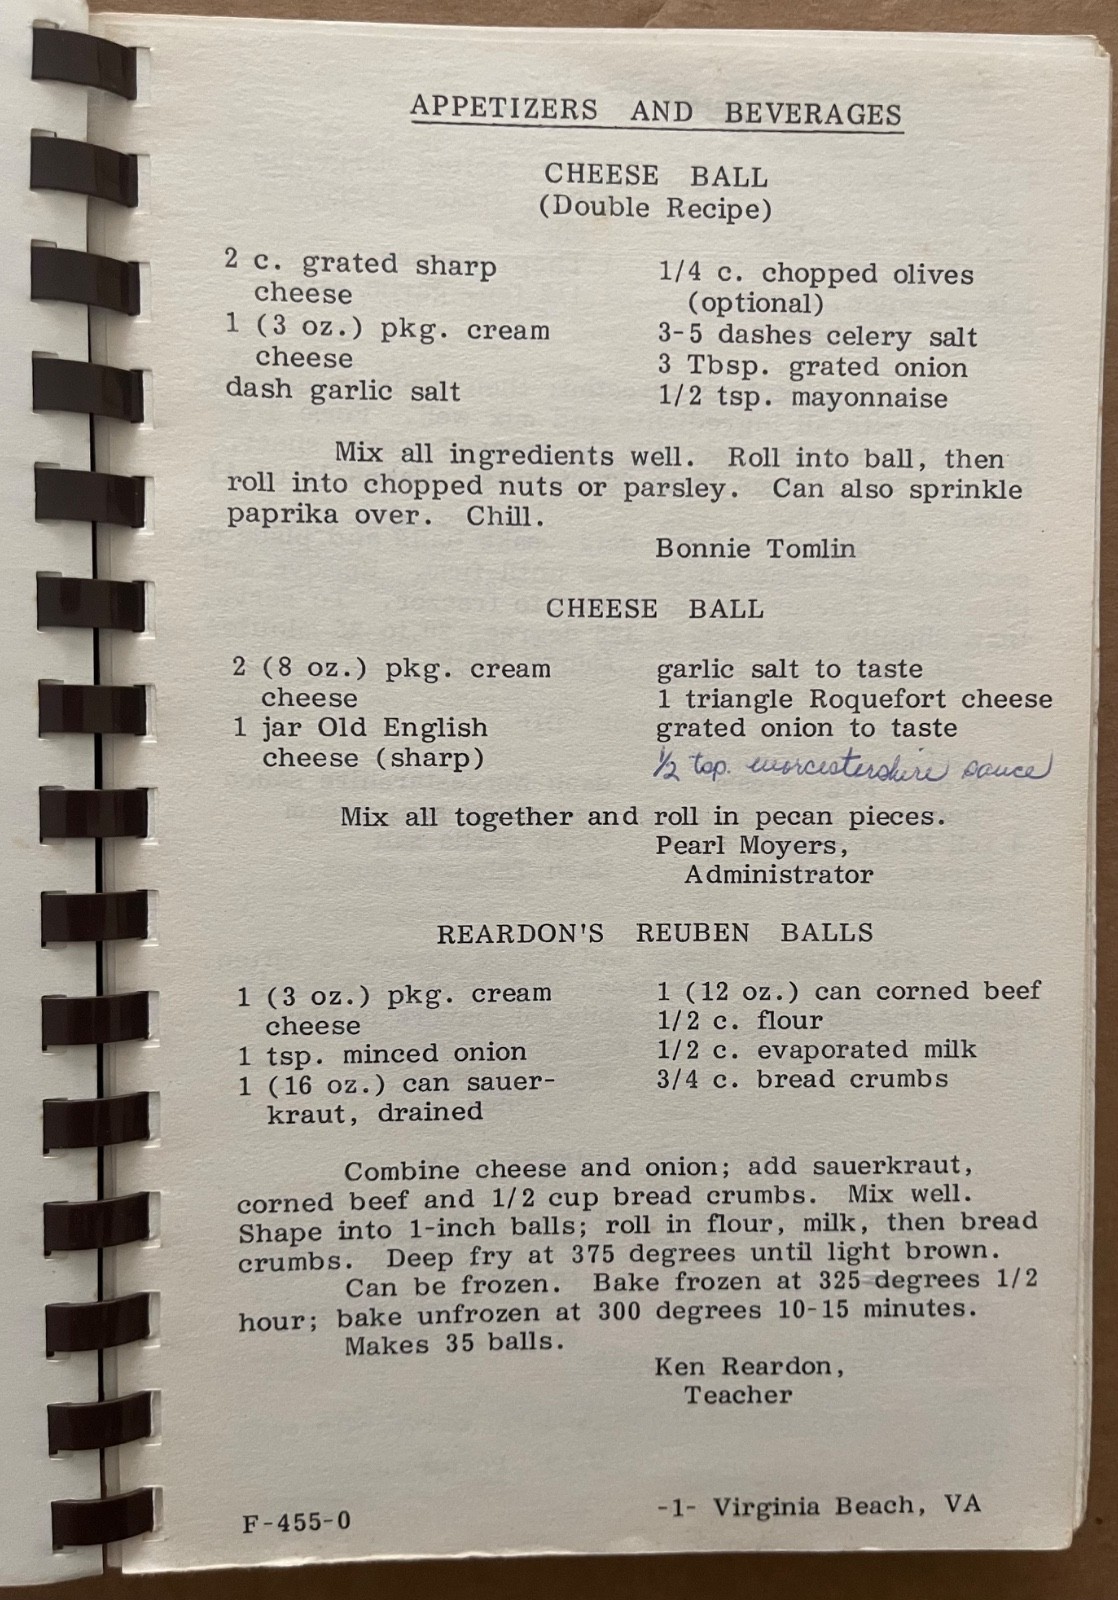 APPETIZERS AND BEVERAGES
CHEESE BALL
(Double Recipe)
2 c. grated sharp
cheese
1 (3 oz.) pkg. cream
cheese
dash garlic salt
1/4 c. chopped olives
(optional)
3-5 dashes celery salt
3 Tbsp. grated onion
1/2 tsp. mayonnaise
Mix all ingredients well. Roll into ball, then
roll into chopped nuts or parsley. Can also sprinkle
paprika over. Chill.
Bonnie Tomlin
CHEESE BALL
2 (8 oz.) pkg. cream
cheese
1 jar Old English
cheese (sharp)
garlic salt to taste
1 triangle Roquefort cheese
grated onion to taste
1/2 tsp. worcestershire sauce
Mix all together and roll in pecan pieces.
Pearl Moyers,
Administrator
REARDON'S REUBEN BALLS
1 (3 oz.) pkg. cream
cheese
1 tsp. minced onion
1 (16 oz.) can sauer-
kraut, drained
1 (12 oz.) can corned beef
1/2 c. flour
1/2 c. evaporated milk
3/4 c. bread crumbs
Combine cheese and onion; add sauerkraut,
corned beef and 1/2 cup bread crumbs. Mix well.
Shape into 1-inch balls; roll in flour, milk, then bread
crumbs. Deep fry at 375 degrees until light brown.
Can be frozen. Bake frozen at 325 degrees 1/2
hour; bake unfrozen at 300 degrees 10-15 minutes.
Makes 35 balls.
Ken Reardon,
Teacher
F-455-0
-1- Virginia Beach, VA